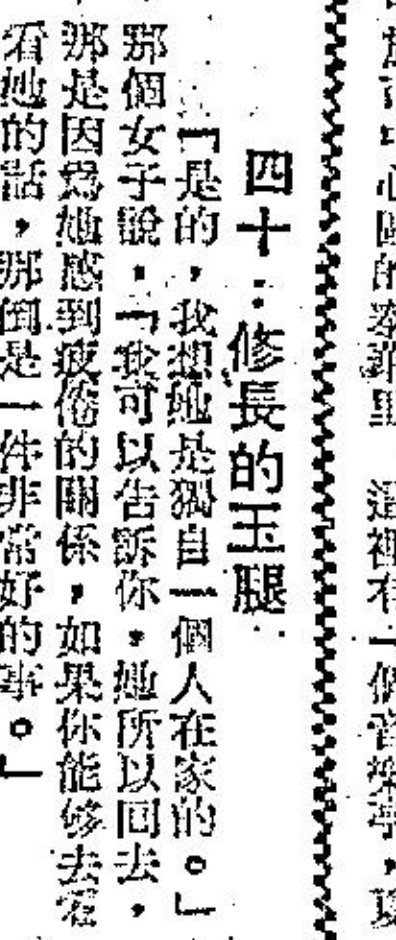 這裡有一個音樂亭，夏
四十：修長的玉腿
「是的，我想她是獨自一個人在家的。」
那個女子說，「我可以告訴你，她所以回去，
那是因爲她感到疲倦的關係，如果你能够去看
看她的話，那倒是一件非常好的事。」